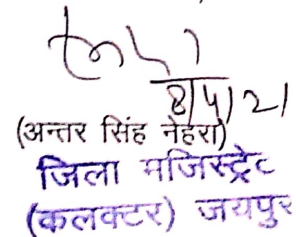 8/5/21
(अन्तर सिंह नेहरा)
जिला मजिस्ट्रेट
(कलक्टर) जयपुर